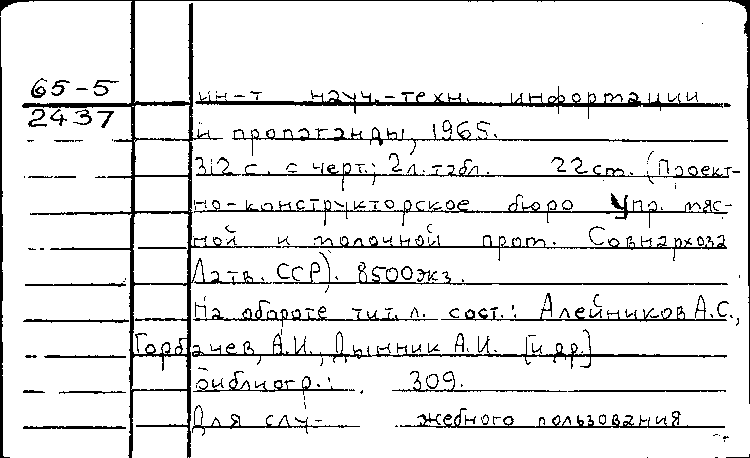 65-5
2437
ин-т науч.-техн. информации
и пропаганды, 1965.
312 с. с черт.; 2 л. табл. 22 cm. (Проект-
но-конструкторское бюро Упр. мяс-
ной и молочной пром. Совнархоза
Латв. ССР). 8500 экз.
На обороте тит. л. сост.: Алейников А.С.,
Горбачев, А.И., Дынник А.И. [и др.]
Библиогр.: 309.
Для слу- жебного пользования